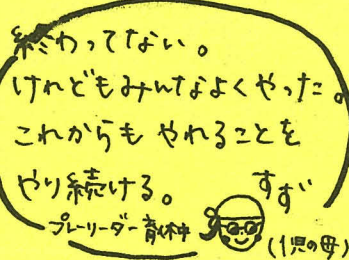 終わってない。
けれどもみんなよくやった。
これからも やれることを
やり続ける。
すず
プレーリーダー育休中
(1児の母)